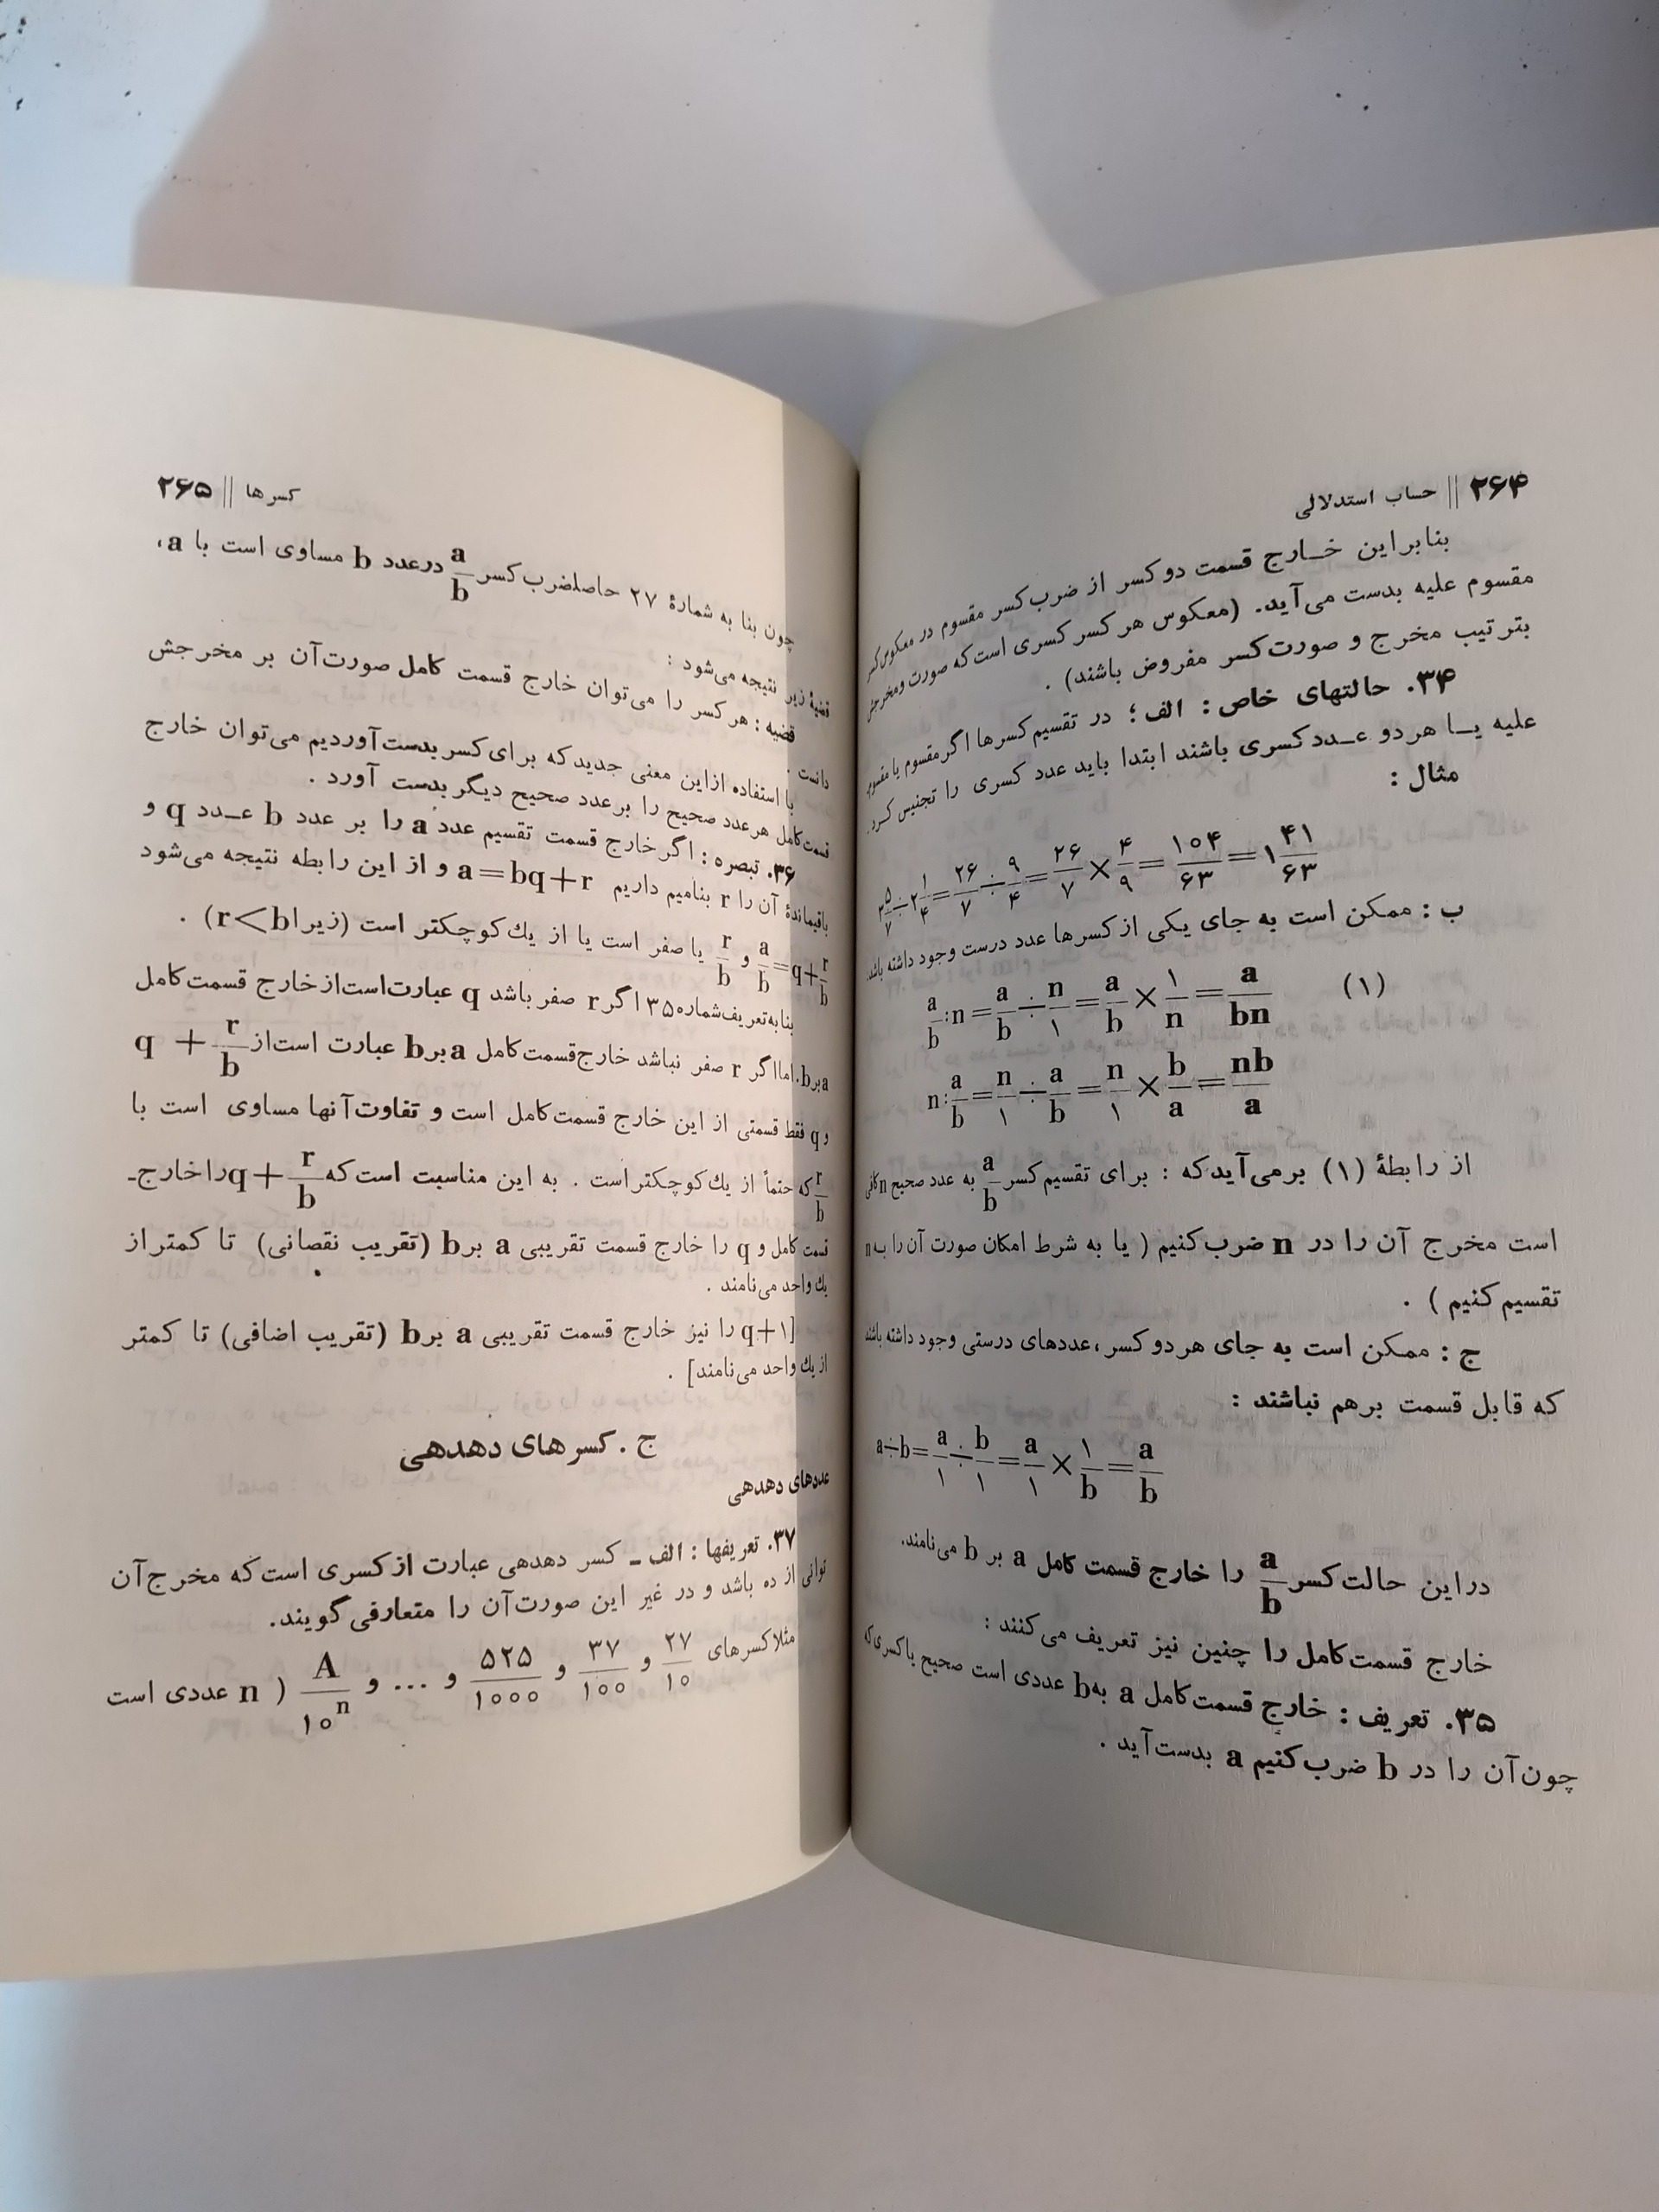 ۲۶۴ || حساب استدلالی
بنابراین خـارج قسمت دو کسر از ضرب کسر مقسوم در معکوس کسر
مقسوم علیه بدست می‌آید. (معکوس هر کسر کسری است که صورت و مخرجش
بترتیب مخرج و صورت کسر مفروض باشند) .
۳۴. حالتهای خاص : الف ؛ در تقسیم کسرها اگر مقسوم یا مقسوم
علیه یـا هردو عـدد کسری باشند ابتدا باید عدد کسری را تجنیس کرد.
مثال :
۳ ۵/۷ ÷ ۲ ۱/۴ = ۲۶/۷ ÷ ۹/۴ = ۲۶/۷ × ۴/۹ = ۱۰۴/۶۳ = ۱ ۴۱/۶۳
ب : ممکن است به جای یکی از کسرها عدد درست وجود داشته باشد.
(۱) a/b : n = a/b ÷ n/۱ = a/b × ۱/n = a/bn
n : a/b = n/۱ ÷ a/b = n/۱ × b/a = nb/a
از رابطهٔ (۱) بر می‌آید که : برای تقسیم کسر a/b به عدد صحیح n کافی
است مخرج آن را در n ضرب کنیم ( یا به شرط امکان صورت آن را به n
تقسیم کنیم ) .
ج : ممکن است به جای هر دو کسر، عددهای درستی وجود داشته باشند
که قابل قسمت برهم نباشند :
a÷b = a/۱ ÷ b/۱ = a/۱ × ۱/b = a/b
در این حالت کسر a/b را خارج قسمت کامل a بر b می‌نامند.
خارج قسمت کامل را چنین نیز تعریف می‌کنند :
۳۵. تعریف : خارج قسمت کامل a به b عددی است صحیح یا کسری که
چون آن را در b ضرب کنیم a بدست آید .
کسرها || ۲۶۵
چون بنا به شمارهٔ ۲۷ حاصلضرب کسر a/b در عدد b مساوی است با a،
قضیهٔ زیر نتیجه می‌شود :
قضیه : هر کسر را می‌توان خارج قسمت کامل صورت آن بر مخرجش
دانست .
با استفاده از این معنی جدید که برای کسر بدست آوردیم می‌توان خارج
قسمت کامل هر عدد صحیح را بر عدد صحیح دیگر بدست آورد .
۳۶. تبصره : اگر خارج قسمت تقسیم عدد a را بر عدد b عـدد q و
باقیماندهٔ آن را r بنامیم داریم a=bq+r و از این رابطه نتیجه می‌شود
a/b = q + r/b و r/b یا صفر است یا از یك کوچکتر است (زیرا r<b) .
بنا به تعریف شماره ۳۵ اگر r صفر باشد q عبارت است از خارج قسمت کامل
a بر b. اما اگر r صفر نباشد خارج قسمت کامل a بر b عبارت است از q + r/b
و q فقط قسمتی از این خارج قسمت کامل است و تفاوت آنها مساوی است با
r/b که حتماً از یك کوچکتر است . به این مناسبت است که q + r/b را خارج-
قسمت کامل و q را خارج قسمت تقریبی a بر b (تقریب نقصانی) تا کمتر از
یك واحد می‌نامند .
[q+۱ را نیز خارج قسمت تقریبی a بر b (تقریب اضافی) تا کمتر
از یك واحد می‌نامند] .
ج . کسرهای دهدهی
عددهای دهدهی
۳۷. تعریفها : الف ـ کسر دهدهی عبارت از کسری است که مخرج آن
توانی از ده باشد و در غیر این صورت آن را متعارفی گویند.
مثلا کسرهای ۲۷/۱۰ و ۳۷/۱۰۰ و ۵۲۵/۱۰۰۰ و ... و A/۱۰ⁿ ( n عددی است